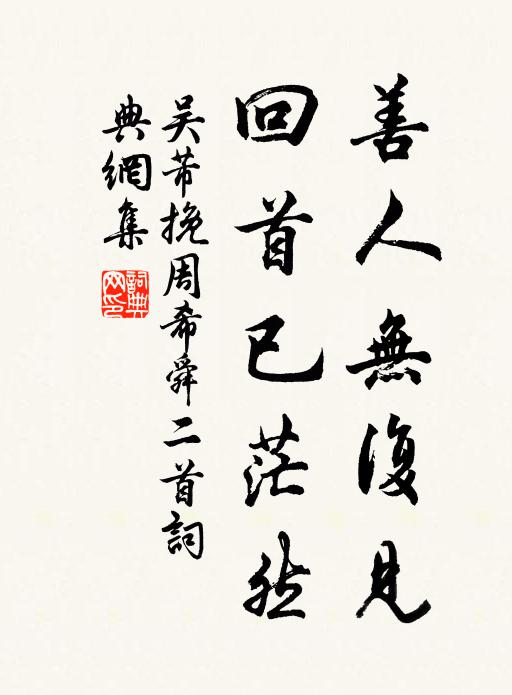 善人無復見
回首已茫然
吴芾挽周希舜二首詞
典網集
詞典
网印